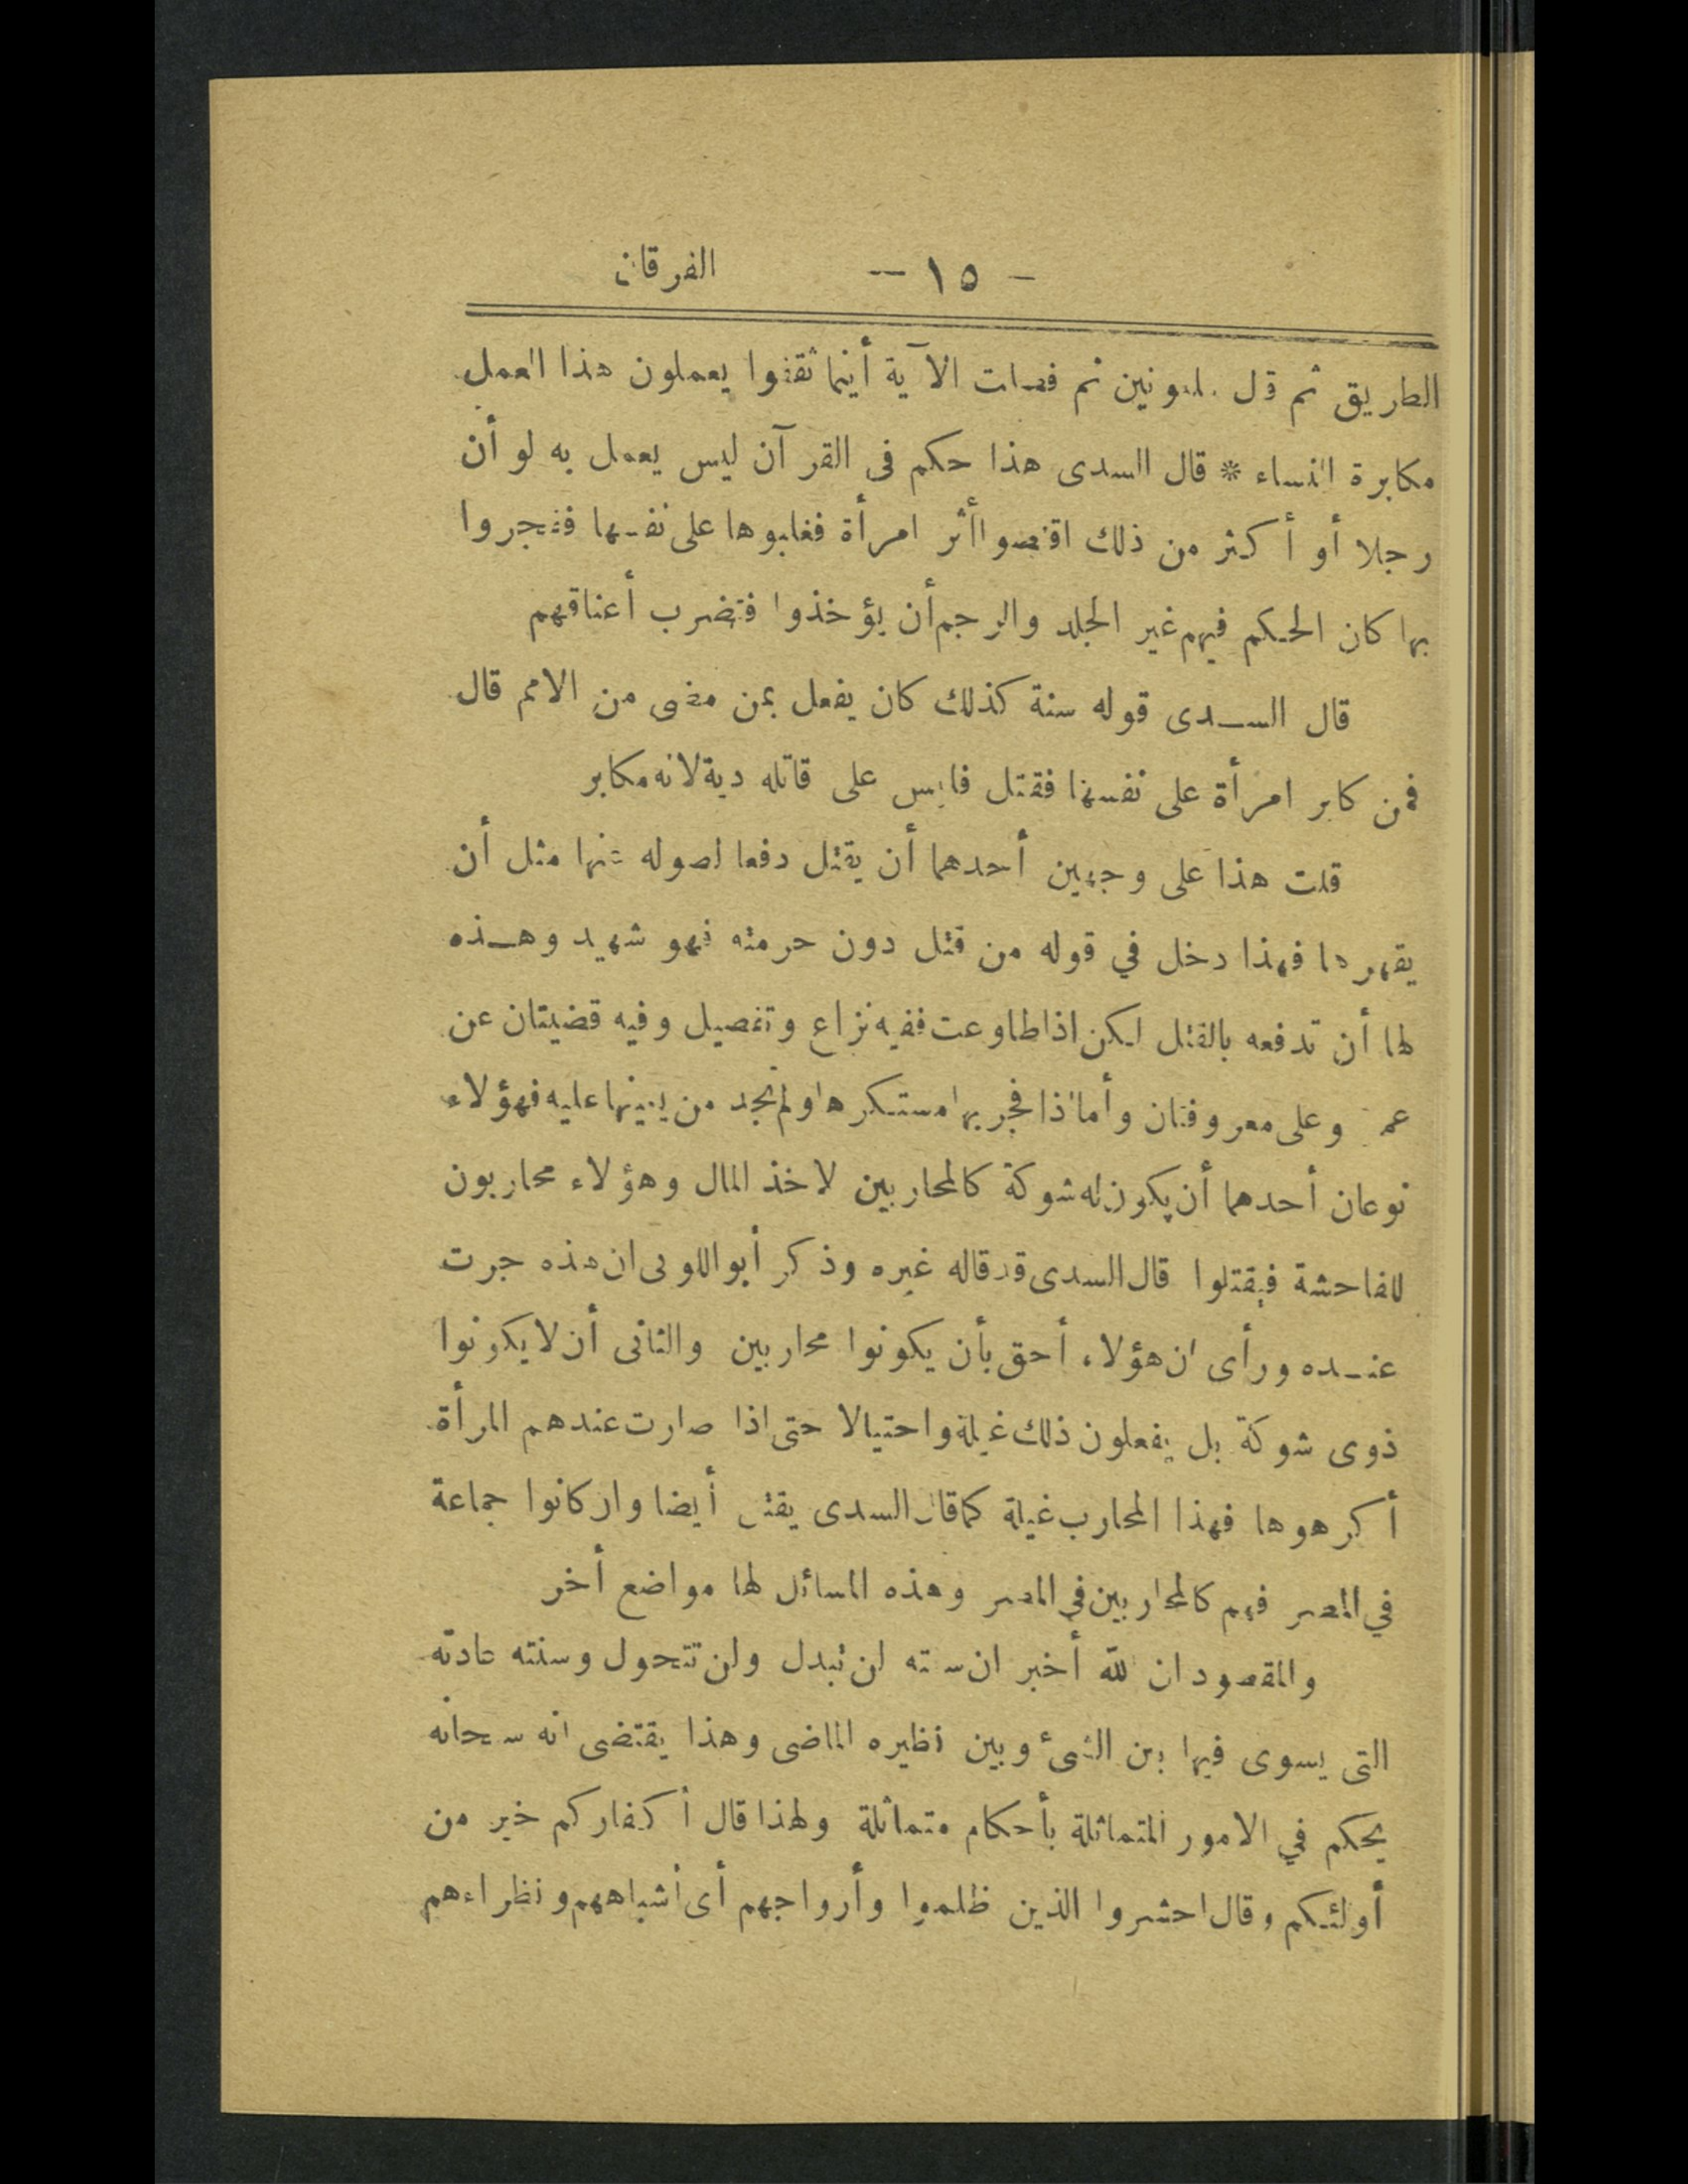 - ١٥ - الفرقان
الطريق ثم قال ملعونين ثم فصلت الآية أينما ثقفوا يعملون هذا العمل
مكابرة النساء * قال السدى هذا حكم فى القرآن ليس يعمل به لو أن
رجلا أو أكثر من ذلك اقتصوا أثر امرأة فغلبوها على نفسها ففجروا
بها كان الحكم فيهم غير الجلد والرجم أن يؤخذوا فتضرب أعناقهم
قال السدى قوله سنة كذلك كان يفعل بمن مضى من الامم قال
فمن كابر امرأة على نفسها فقتل فليس على قاتله دية لانه مكابر
قلت هذا على وجهين أحدهما أن يقتل دفعا لصوله عنها مثل أن
يقهرها فهذا دخل في قوله من قتل دون حرمته فهو شهيد وهذه
لها أن تدفعه بالقتل لكن اذا طاوعت ففيه نزاع وتفصيل وفيه قضيتان عن
عمر وعلى معروفتان وأما اذا فجر بها مستكرها ولم تجد من يعينها عليه فهؤلاء
نوعان أحدهما أن يكون له شوكة كالمحاربين لاخذ المال وهؤلاء محاربون
للفاحشة فيقتلوا قال السدى قد قاله غيره وذكر أبو اللوبى ان هذه جرت
عنده ورأى ان هؤلاء أحق بأن يكونوا محاربين والثانى أن لا يكونوا
ذوى شوكة بل يفعلون ذلك غيلة واحتيالا حتى اذا صارت عندهم المرأة
أكرهوها فهذا المحارب غيلة كما قال السدى يقتل أيضا وان كانوا جماعة
في المصر فهم كالمحاربين في المصر وهذه المسائل لها مواضع أخر
والمقصود ان الله أخبر ان سنته لن تبدل ولن تتحول وسنته عادته
التى يسوى فيها بين الشىء وبين نظيره الماضى وهذا يقتضى انه سبحانه
يحكم في الامور المتماثلة بأحكام متماثلة ولهذا قال أكفاركم خير من
أولئكم وقال احشروا الذين ظلموا وأزواجهم أى أشباههم ونظراءهم